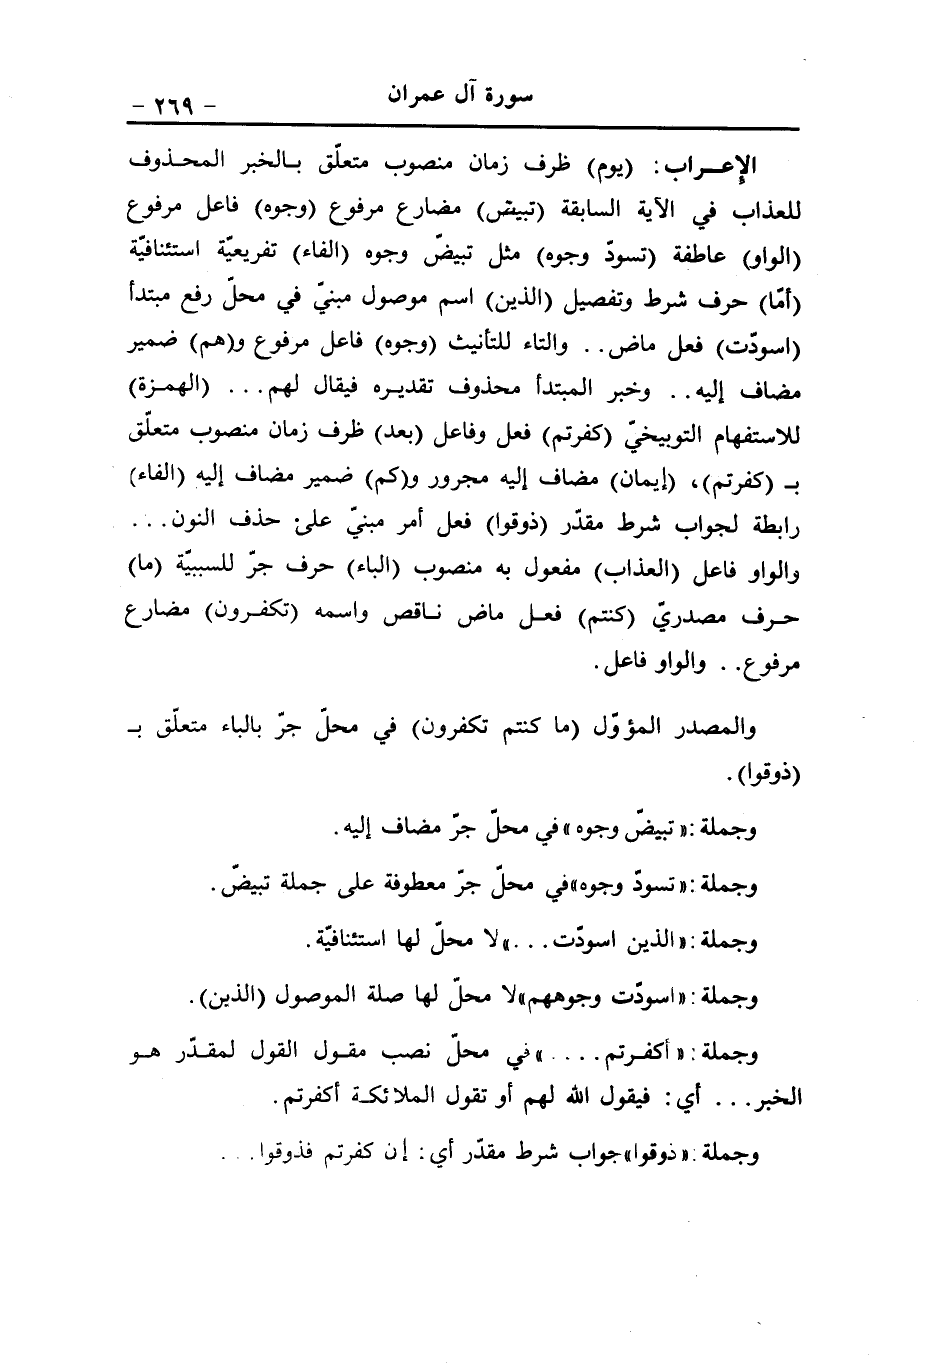 سورة آل عمران
- ٢٦٩ -
الإعـــراب: (يوم) ظرف زمان منصوب متعلّق بـالخبر المحـذوف
للعذاب في الآية السابقة (تبيضّ) مضارع مرفوع (وجوه) فاعل مرفوع
(الواو) عاطفة (تسودّ وجوه) مثل تبيضّ وجوه (الفاء) تفريعيّة استئنافيّة
(أمّا) حرف شرط وتفصيل (الذين) اسم موصول مبنيّ في محلّ رفع مبتدأ
(اسودّت) فعل ماض.. والتاء للتأنيث (وجوه) فاعل مرفوع و(هم) ضمير
مضاف إليه.. وخبر المبتدأ محذوف تقديره فيقال لهم... (الهمزة)
للاستفهام التوبيخيّ (كفرتم) فعل وفاعل (بعد) ظرف زمان منصوب متعلّق
بـ (كفرتم)، (إيمان) مضاف إليه مجرور و(كم) ضمير مضاف إليه (الفاء)
رابطة لجواب شرط مقدّر (ذوقوا) فعل أمر مبنيّ على حذف النون...
والواو فاعل (العذاب) مفعول به منصوب (الباء) حرف جرّ للسببيّة (ما)
حـرف مصدريّ (كنتم) فعـل ماض نـاقص واسمه (تكفـرون) مضارع
مرفوع.. والواو فاعل.
والمصدر المؤوّل (ما كنتم تكفرون) في محلّ جرّ بالباء متعلّق بـ
(ذوقوا).
وجملة:«تبيضّ وجوه» في محلّ جرّ مضاف إليه.
وجملة:«تسودّ وجوه» في محلّ جرّ معطوفة على جملة تبيضّ.
وجملة:«الذين اسودّت...» لا محلّ لها استئنافيّة.
وجملة:«اسودّت وجوههم» لا محلّ لها صلة الموصول (الذين).
وجملة:«أكفـرتم....» في محلّ نصب مقـول القول لمقـدّر هـو
الخبر... أي: فيقول الله لهم أو تقول الملائكـة أكفرتم.
وجملة:«ذوقوا» جواب شرط مقدّر أي: إن كفرتم فذوقوا...